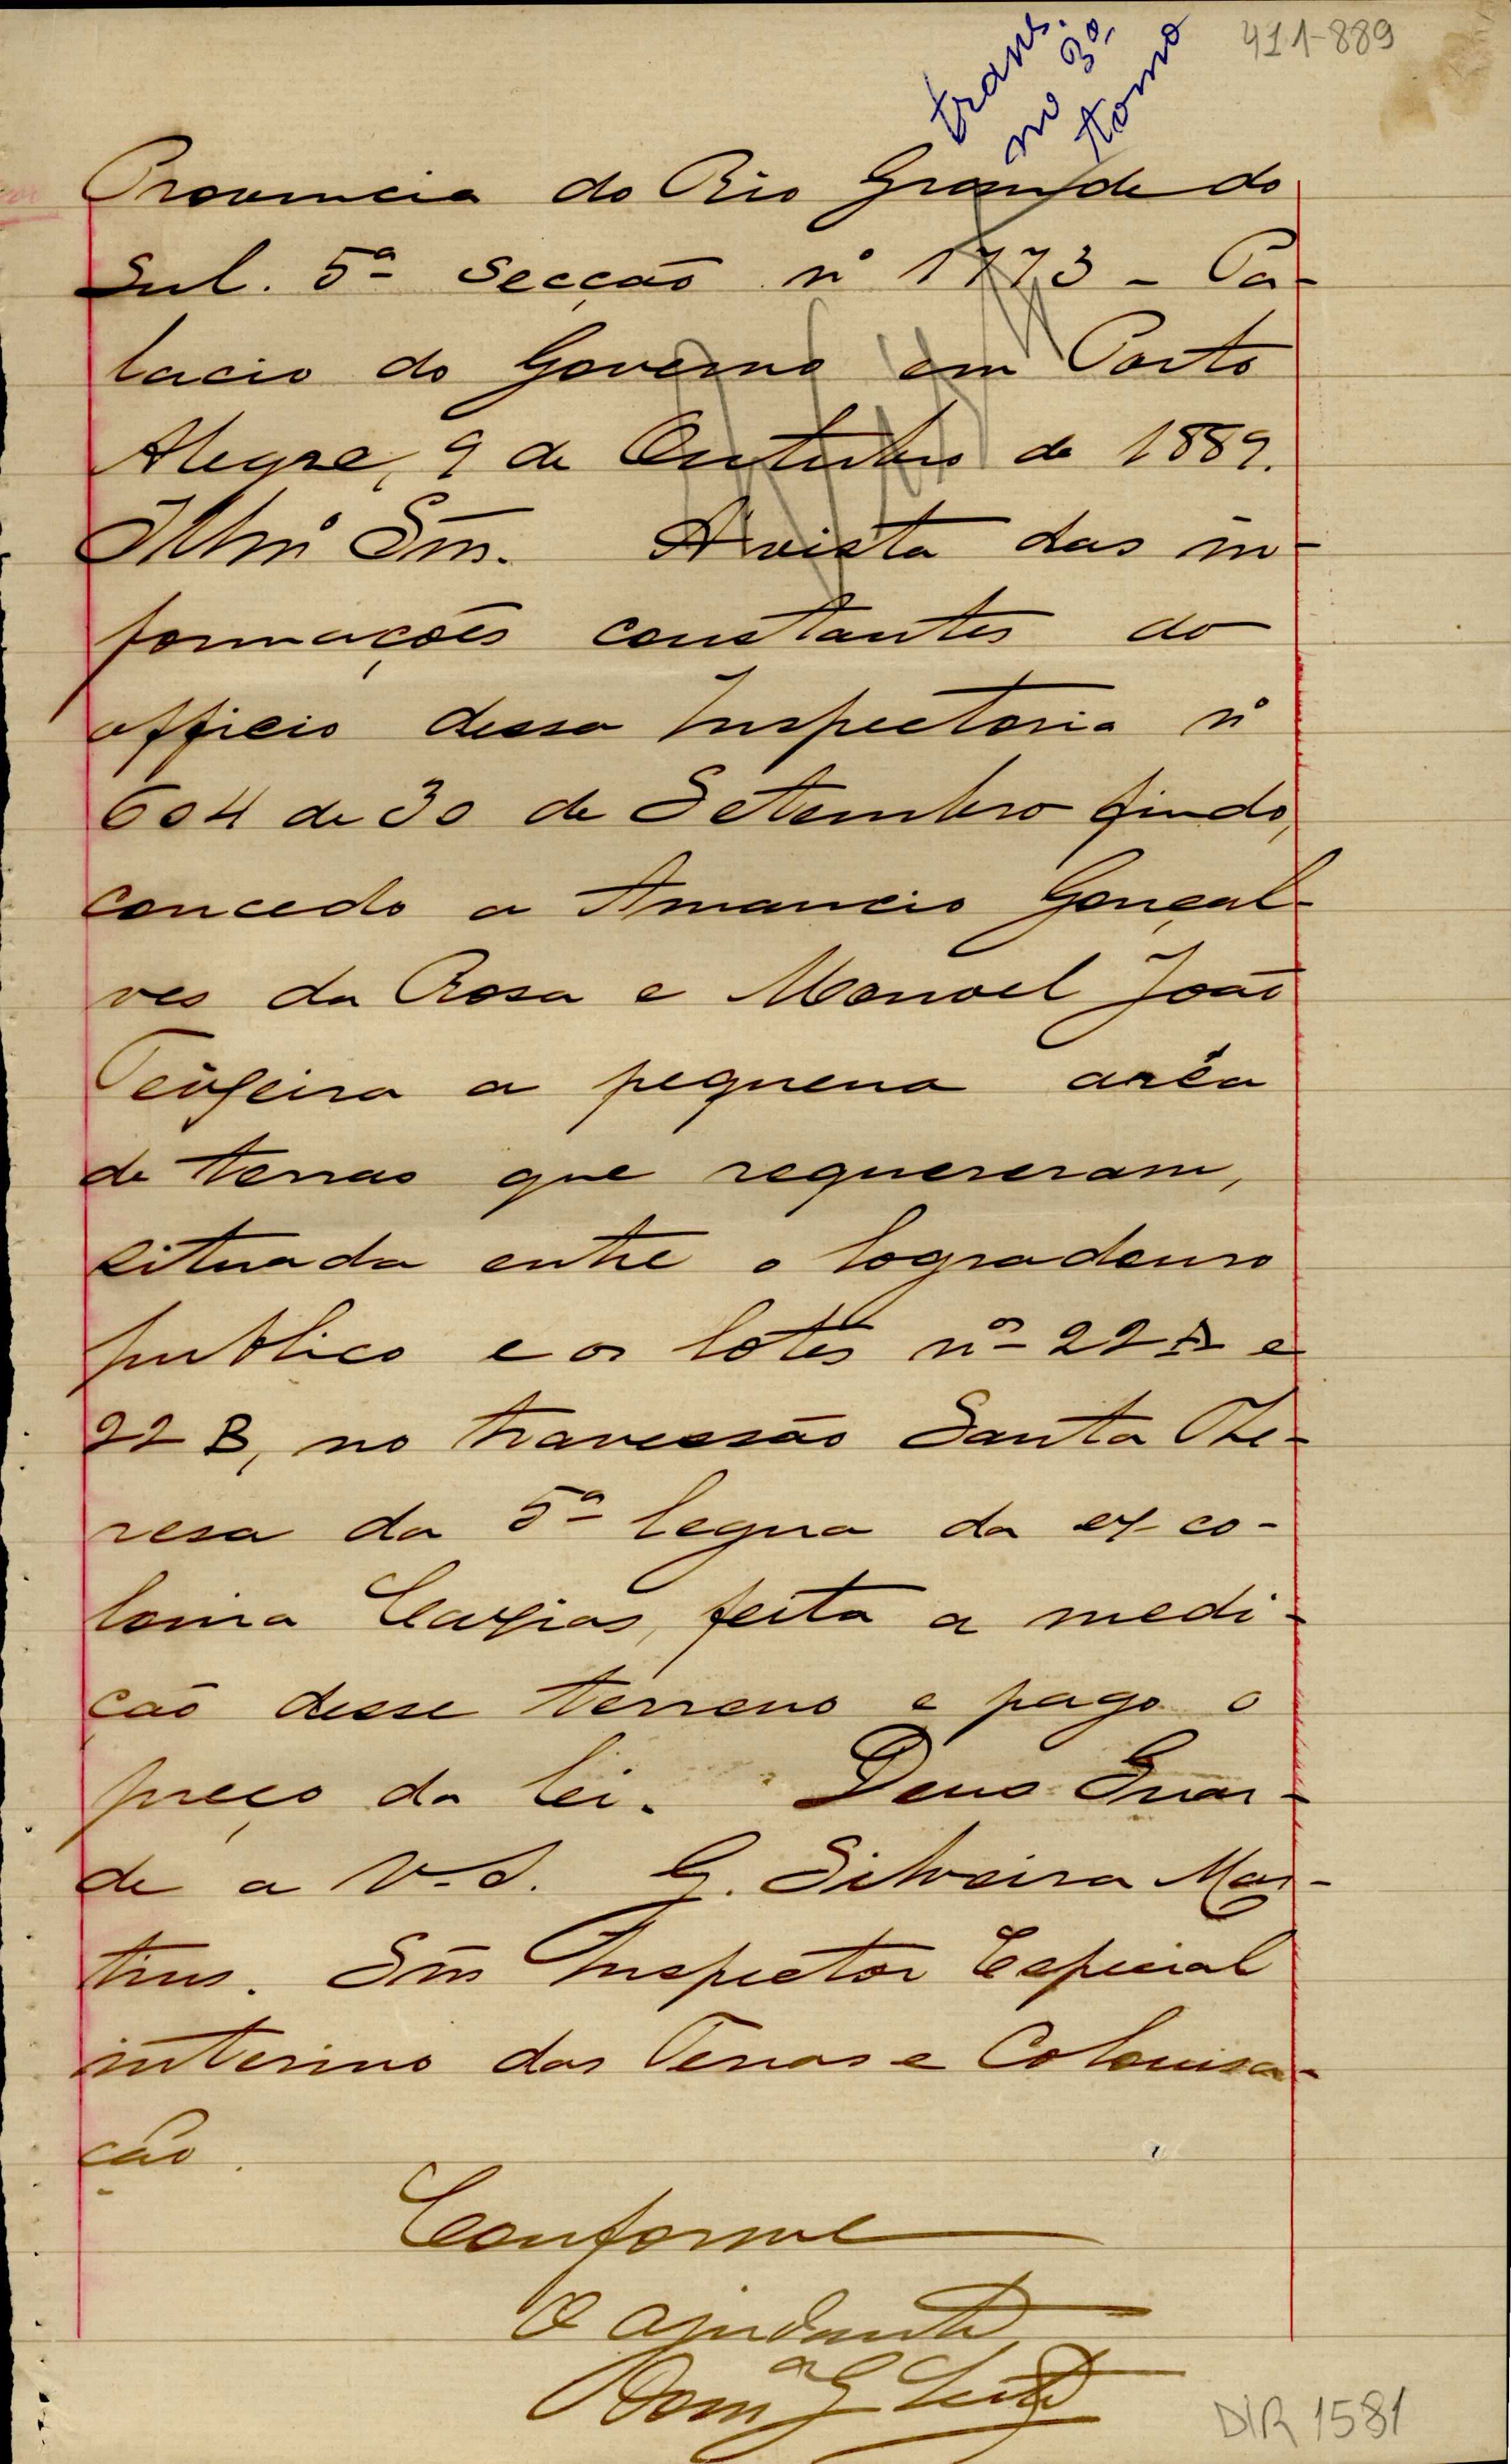 411-889
trans.
no 3º
tomo
Provincia do Rio Grande do
Sul. 5ª Secção nº 1773 - Pa-
lacio do Governo em Porto
Alegre, 9 de Outubro de 1889.
Illmº Snr. A vista das in-
formações constantes do
officio dessa Inspectoria nº
604 de 30 de Setembro findo,
concedo a Amancio Gonçal-
ves da Rosa e Manoel João
Teixeira a pequena aréa
de terras que requereram,
situada entre o logradouro
publico e os lotes nos 22 A e
22 B, no travessão Santa The-
resa da 5ª legua da ex-co-
lonia Caxias, feita a medi-
ção desse terreno e pago o
preço da lei. Deus Guar-
de a V. S. G. Silveira Mar-
tins. Snr Inspector Especial
interino das Terras e Colonisa-
ção.
Conforme
O ajudante
DIR 1581